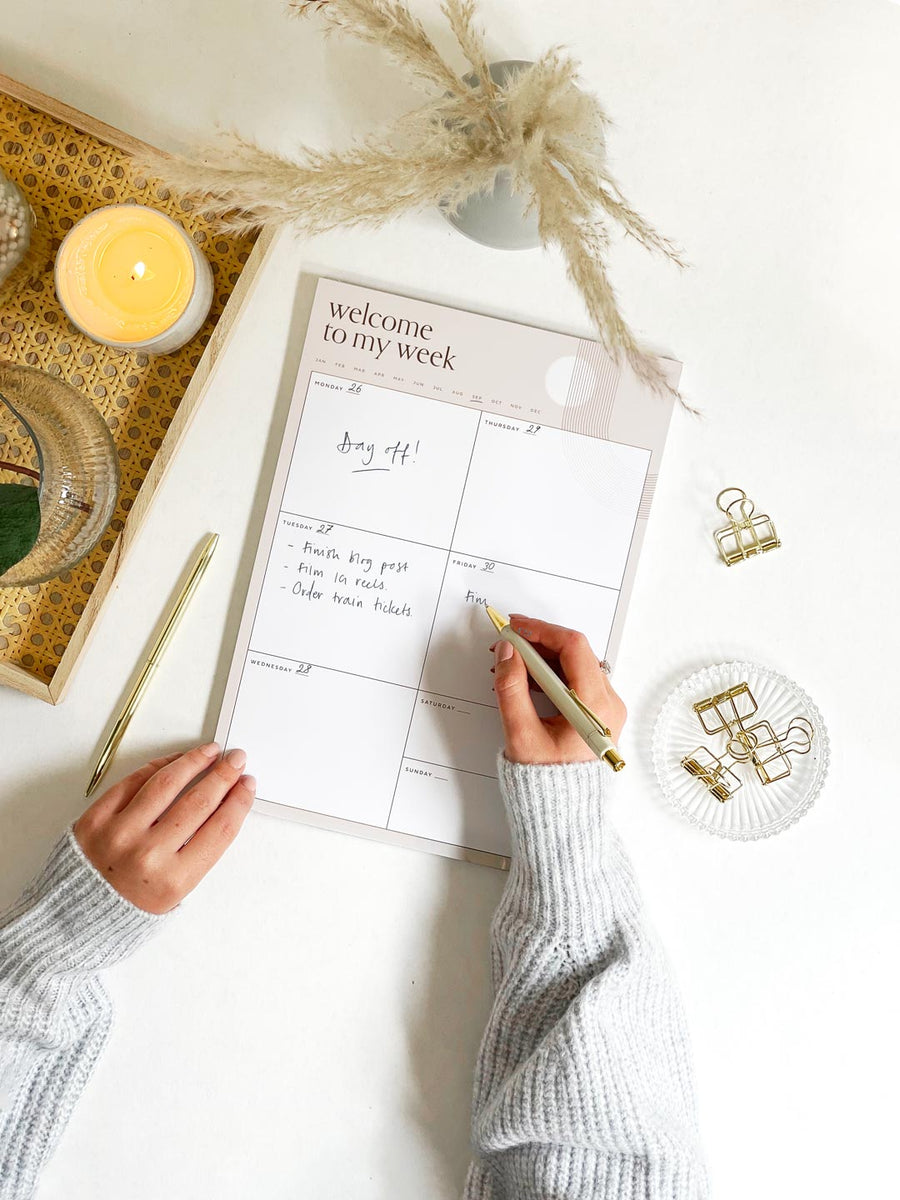 welcome
to my week
JAN FEB MAR APR MAY JUN JUL AUG SEP OCT NOV DEC
MONDAY 26
Day off!
TUESDAY 27
- Finish blog post
- Film IG reels.
- Order train tickets.
WEDNESDAY 28
THURSDAY 29
FRIDAY 30
Fin
SATURDAY
SUNDAY